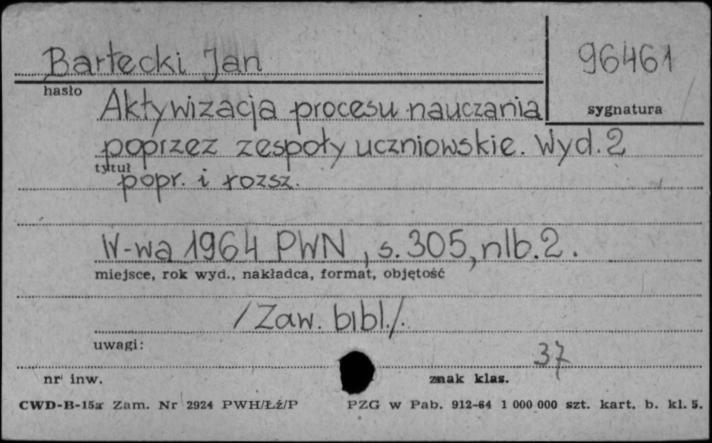 Bartecki Jan
96461
hasło
sygnatura
Aktywizacja procesu nauczania
poprzez zespoły uczniowskie. Wyd. 2
tytuł
popr. i rozsz.
W-wa 1964 PWN, s. 305, nlb. 2.
miejsce, rok wyd., nakładca, format, objętość
/Zaw. bibl./.
uwagi:
37
nr inw.
znak klas.
CWD-B-15a Zam. Nr 2924 PWH/Łź/P
PZG w Pab. 912-64 1 000 000 szt. kart. b. kl. 5.